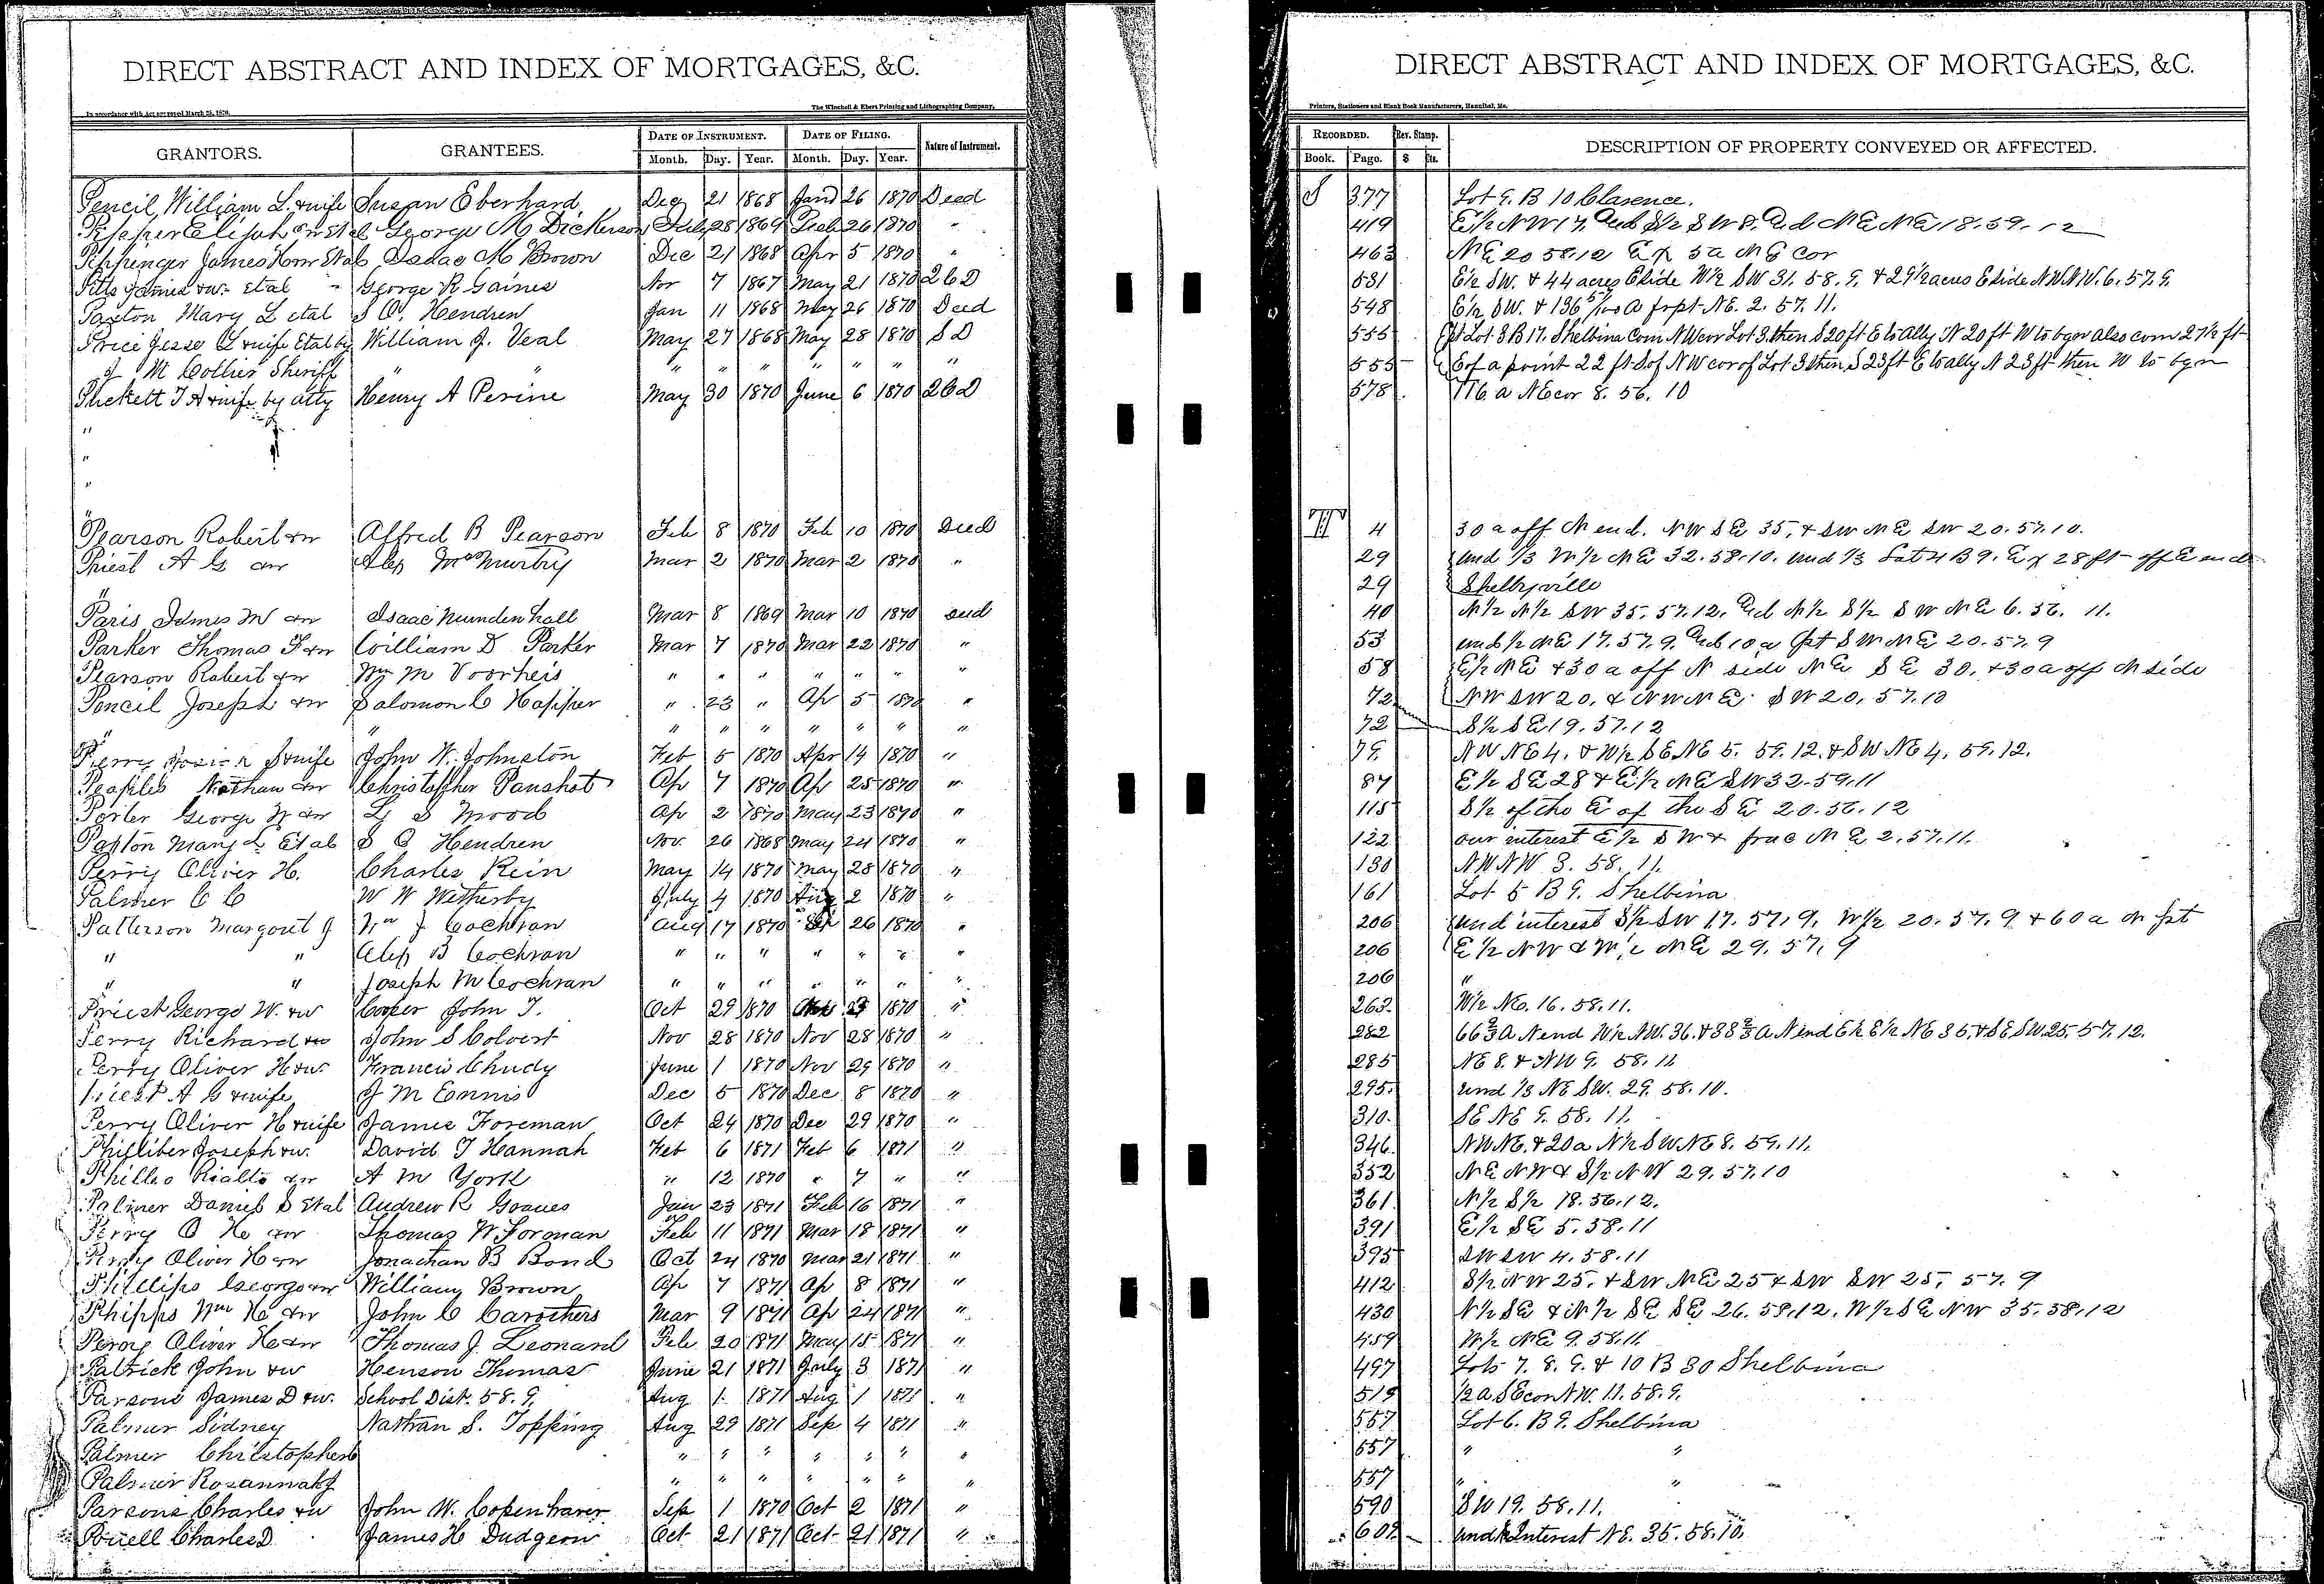 DIRECT ABSTRACT AND INDEX OF MORTGAGES, &C.
In accordance with Act approved March 28, 1870. The Winchell & Ebert Printing and Lithographing Company,
GRANTORS. GRANTEES. DATE OF INSTRUMENT. DATE OF FILING. Nature of Instrument.
Month. Day. Year. Month. Day. Year.
Pencil, William L. & wife Susan Eberhard Dec 21 1868 Jand 26 1870 Deed
Elijah George M Dickerson July 28 1869 Feb 26 1870 "
Pippenger James H & w Et al Isaac M Brown Dec 21 1868 Apr 5 1870 "
Pitts James & w. Etal George R Gaines Nor 7 1867 May 21 1870 2 C D
Paxton Mary L etal S O. Hendren Jan 11 1868 May 26 1870 Deed
Price Jesse L & wife Etal by William J. Veal May 27 1868 May 28 1870 S D
J M Collier Sheriff " " " " " " " " "
Puckett T A & wife by atty Henry A Perine May 30 1870 June 6 1870 2 C D
"
"
"
"
Pearson Robert & w Alfred B Pearson Feb 8 1870 Feb 10 1870 Deed
Priest A G & w Alex McMurtry Mar 2 1870 Mar 2 1870 "
"
Paris James M & w Isaac Mundenhall Mar 8 1869 Mar 10 1870 Deed
Parker Thomas F & w William D Parker Mar 7 1870 Mar 22 1870 "
Pearson Robert & w Wm M Voorheis " " " " " " "
Pencil Joseph & w Salomon C Happer " 23 " Ap 5 1870 "
" " " " " " " " "
Perry & wife John W. Johnston Feb 5 1870 Apr 14 1870 "
Peoples Nathan & w Christopher Panshot Ap 7 1870 Ap 25 1870 "
Porter George W & w L S Wood Ap 2 1870 May 23 1870 "
Paxton Mary L Et al S O Hendren Nov. 26 1868 May 24 1870 "
Perry Oliver H. Charles Rein May 14 1870 May 28 1870 "
Palmer C C W W Wetherby July 4 1870 Aug 2 1870 "
Patterson Margaret J Wm J Cochran Aug 17 1870 Sep 26 1870 "
" " Alex B Cochran " " " " " " "
" " Joseph M Cochran " " " " " " "
Priest George W. & w Cooper John T. Oct 29 1870 1870 "
Perry Richard & w John S Colvert Nov 28 1870 Nov 28 1870 "
Perry Oliver H & w. Francis Chudy June 1 1870 Nov 29 1870 "
Priest A G & wife J M Ennis Dec 5 1870 Dec 8 1870 "
Perry Oliver H & wife James Foreman Oct 24 1870 Dec 29 1870 "
Philliber Joseph & w. David T Hannah Feb 6 1871 Feb 6 1871 "
Phillio Rialto & w A M York " 12 1870 " 7 " "
Palmer Daniel S Et al Andrew R Goaues Jan 23 1871 Feb 16 1871 "
Perry O H & w Thomas W Forman Feb 11 1871 Mar 18 1871 "
Perry Oliver H & w Jonathan B Bond Oct 24 1870 Mar 21 1871 "
Phillips George & w William Brown Ap 7 1871 Ap 8 1871 "
Phipps Wm H & w John C Carothers Mar 9 1871 Ap 24 1871 "
Peroy Oliver H & w Thomas J. Leonard Feb 20 1871 May 15 1871 "
Patrick John & w Henson Thomas June 21 1871 July 3 1871 "
Parsons James D & w. School Dist. 58. 9. Aug 1. 1871 Aug 1 1871 "
Palmer Sidney Nathan S. Topping Aug 29 1871 Sep 4 1871 "
Palmer Christopher C " " " " " " "
Palmer Rosannah J " " " " " " "
Parsons Charles & w John W. Copenhaver Sep 1 1870 Oct 2 1871 "
Powell Charles D James H Dudgeon Oct 21 1871 Oct 21 1871 "
DIRECT ABSTRACT AND INDEX OF MORTGAGES, &C.
Printers, Stationers and Blank Book Manufacturers, Hannibal, Mo.
RECORDED. Rev. Stamp. DESCRIPTION OF PROPERTY CONVEYED OR AFFECTED.
Book. Page. $ Cts.
S 377 Lot 9. B 10 Clarence.
419 E½ NW 17, And S½ SW 8. And NE NE 18. 59. 12
463 NE 20 58.12 Ex 5a NE Cor
531 E½ SW. & 44 acres E side W½ SW 31. 58. 9. & 29½ acres E side NW NW. 6. 57. 9.
548 E½ SW. & 136 5/100 a frpt NE. 2. 57. 11.
555 Pt Lot 3 B 17. Shelbina Com NW cor Lot 3. then S 20 ft E to Ally N 20 ft W to bgn also com 27½ ft
555 E of a point 22 ft S of NW cor of Lot 3 then S 23 ft E to ally N 23 ft then W to bgn
578 116 a NE cor 8. 56. 10
T 4 30 a off N end. NW SE 35, & SW NE SW 20. 57. 10.
29 und ⅓ W½ NE 32. 58. 10. und ⅓ Lot 4 B 9. Ex 28 ft off E end
29 Shelbyville
40 N½ N½ SW 35. 57. 12, And N½ S½ SW NE 6. 56. 11.
53 und ½ NE 17. 57. 9, And 10 a pt SW NE 20. 57. 9
58 E½ NE & 30 a off N side NE SE 30. & 30 a off N side
72 NW SW 20, & NW NE SW 20, 57. 10
72 S½ SE 19. 57. 12
79 NW NE 4. & W½ SE NE 5. 59. 12. & SW NE 4. 59. 12.
87 E½ SE 28 & E½ NE SW 32. 59. 11
115 S½ of the E of the SE 20. 56. 12
122 our interest E½ SW & frac NE 2. 57. 11.
130 NW NW 3. 58. 11.
161 Lot 5 B 9. Shelbina
206 und interest S½ SW 17. 57. 9, W½ 20. 57. 9 & 60 a N pt
206 E½ NW & W½ NE 29. 57. 9
206 "
263. W½ NE. 16. 58. 11.
282 66⅔ A N end W½ NW. 36. & 38⅔ A N end E½ E½ NE 35. & SE SW. 25. 57. 12.
285 NE 8. & NW 9. 58. 11
295. und ⅓ NE SW. 29. 58. 10.
310. SE NE 9. 58. 11.
346. NW NE. & 20 a N½ SW NE 8. 59. 11.
352 NE NW & S½ NW 29. 57. 10
361 N½ S½ 18. 56. 12.
391 E½ SE 5. 58. 11
395 SW SW 4. 58. 11
412 S½ NW 25. & SW NE 25 & SW SW 25, 57. 9
430 N½ SE & N½ SE SE 26. 58. 12. W½ SE NW 35. 58. 12
459 W½ NE 9. 58. 11
497 Lots 7. 8. 9. & 10 B 30 Shelbina
519 ½ a SE cor NW. 11. 58. 9.
557 Lot 6. B 9. Shelbina
557 " "
557 " "
590 SW 19. 58. 11.
602 Interest NE. 35. 58. 10.